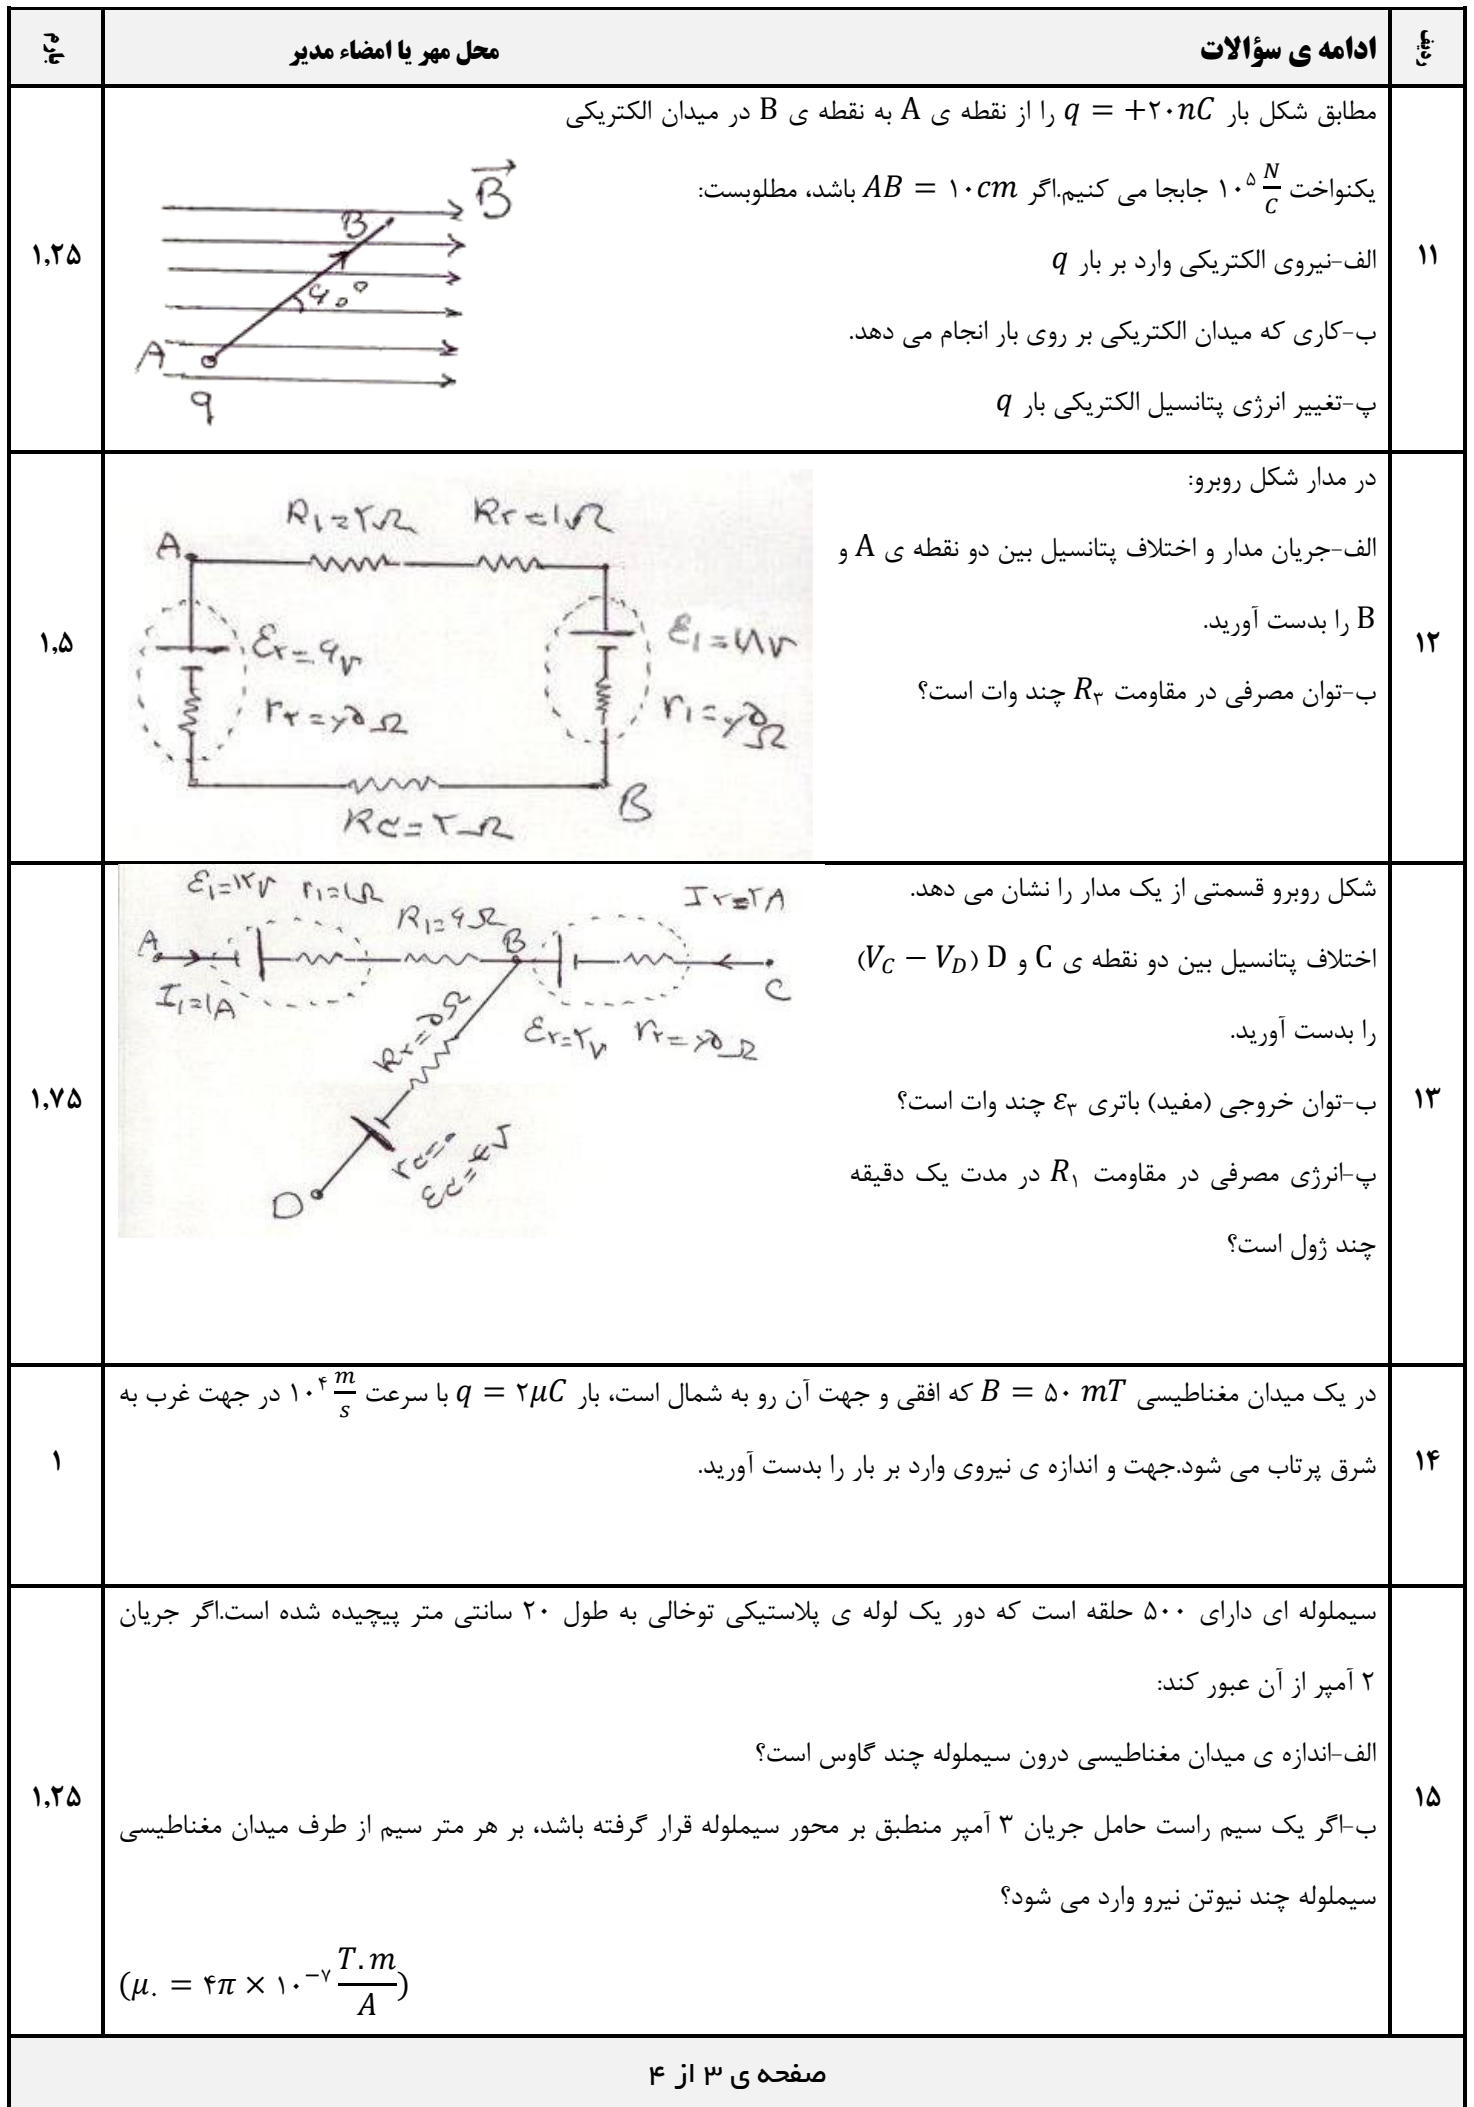 ردیف
ادامه ی سؤالات
محل مهر یا امضاء مدیر
بارم
۱۱
مطابق شکل بار q = +۲۰nC را از نقطه ی A به نقطه ی B در میدان الکتریکی
یکنواخت ۱۰^۵ N/C جابجا می کنیم.اگر AB = ۱۰cm باشد، مطلوبست:
الف-نیروی الکتریکی وارد بر بار q
ب-کاری که میدان الکتریکی بر روی بار انجام می دهد.
پ-تغییر انرژی پتانسیل الکتریکی بار q
B
B
۶۰°
A
q
۱,۲۵
۱۲
در مدار شکل روبرو:
الف-جریان مدار و اختلاف پتانسیل بین دو نقطه ی A و
B را بدست آورید.
ب-توان مصرفی در مقاومت R۳ چند وات است؟
R۱=۲Ω R۲=۱Ω
A
ε۲=۶v
r۲=۰٫۵Ω
ε۱=۱۸v
r۱=۰٫۵Ω
R۳=۲Ω
B
۱,۵
۱۳
شکل روبرو قسمتی از یک مدار را نشان می دهد.
اختلاف پتانسیل بین دو نقطه ی C و D (V_C − V_D)
را بدست آورید.
ب-توان خروجی (مفید) باتری ε۳ چند وات است؟
پ-انرژی مصرفی در مقاومت R۱ در مدت یک دقیقه
چند ژول است؟
ε۱=۱۲v r۱=۱Ω
R۱=۶Ω
I۲=۲A
A
B
C
I۱=۱A
R۲=۵Ω
ε۲=۲v r۲=۰٫۵Ω
r۳=۰
ε۳=۴v
D
۱,۷۵
۱۴
در یک میدان مغناطیسی B = ۵۰ mT که افقی و جهت آن رو به شمال است، بار q = ۲μC با سرعت ۱۰^۴ m/s در جهت غرب به
شرق پرتاب می شود.جهت و اندازه ی نیروی وارد بر بار را بدست آورید.
۱
۱۵
سیملوله ای دارای ۵۰۰ حلقه است که دور یک لوله ی پلاستیکی توخالی به طول ۲۰ سانتی متر پیچیده شده است.اگر جریان
۲ آمپر از آن عبور کند:
الف-اندازه ی میدان مغناطیسی درون سیملوله چند گاوس است؟
ب-اگر یک سیم راست حامل جریان ۳ آمپر منطبق بر محور سیملوله قرار گرفته باشد، بر هر متر سیم از طرف میدان مغناطیسی
سیملوله چند نیوتن نیرو وارد می شود؟
(μ. = ۴π × ۱۰^−۷ T.m/A)
۱,۲۵
صفحه ی ۳ از ۴